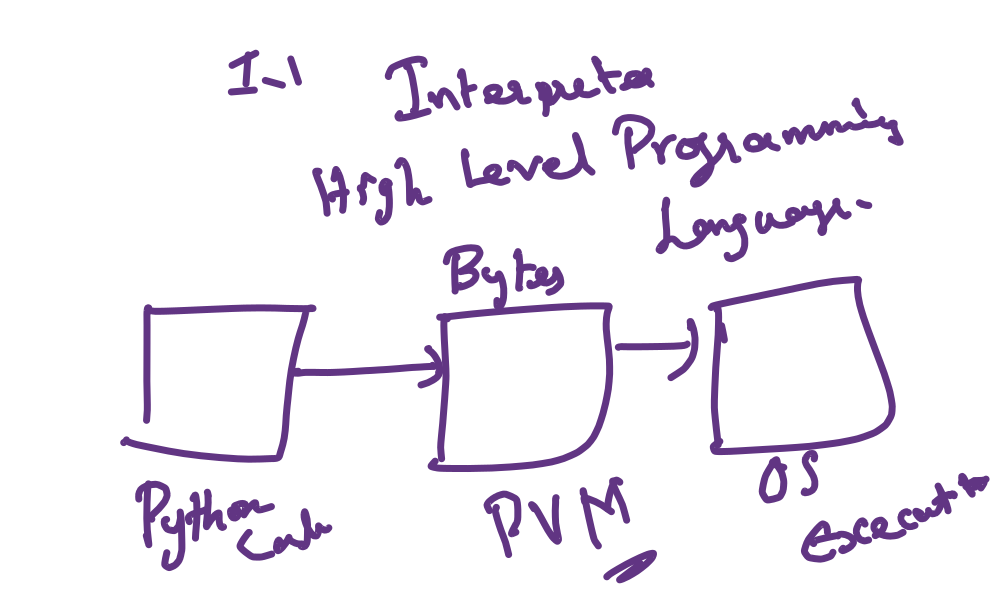 I-1
Interpreter
High Level Programming
Language.
Bytes
Python
Code
PVM
OS